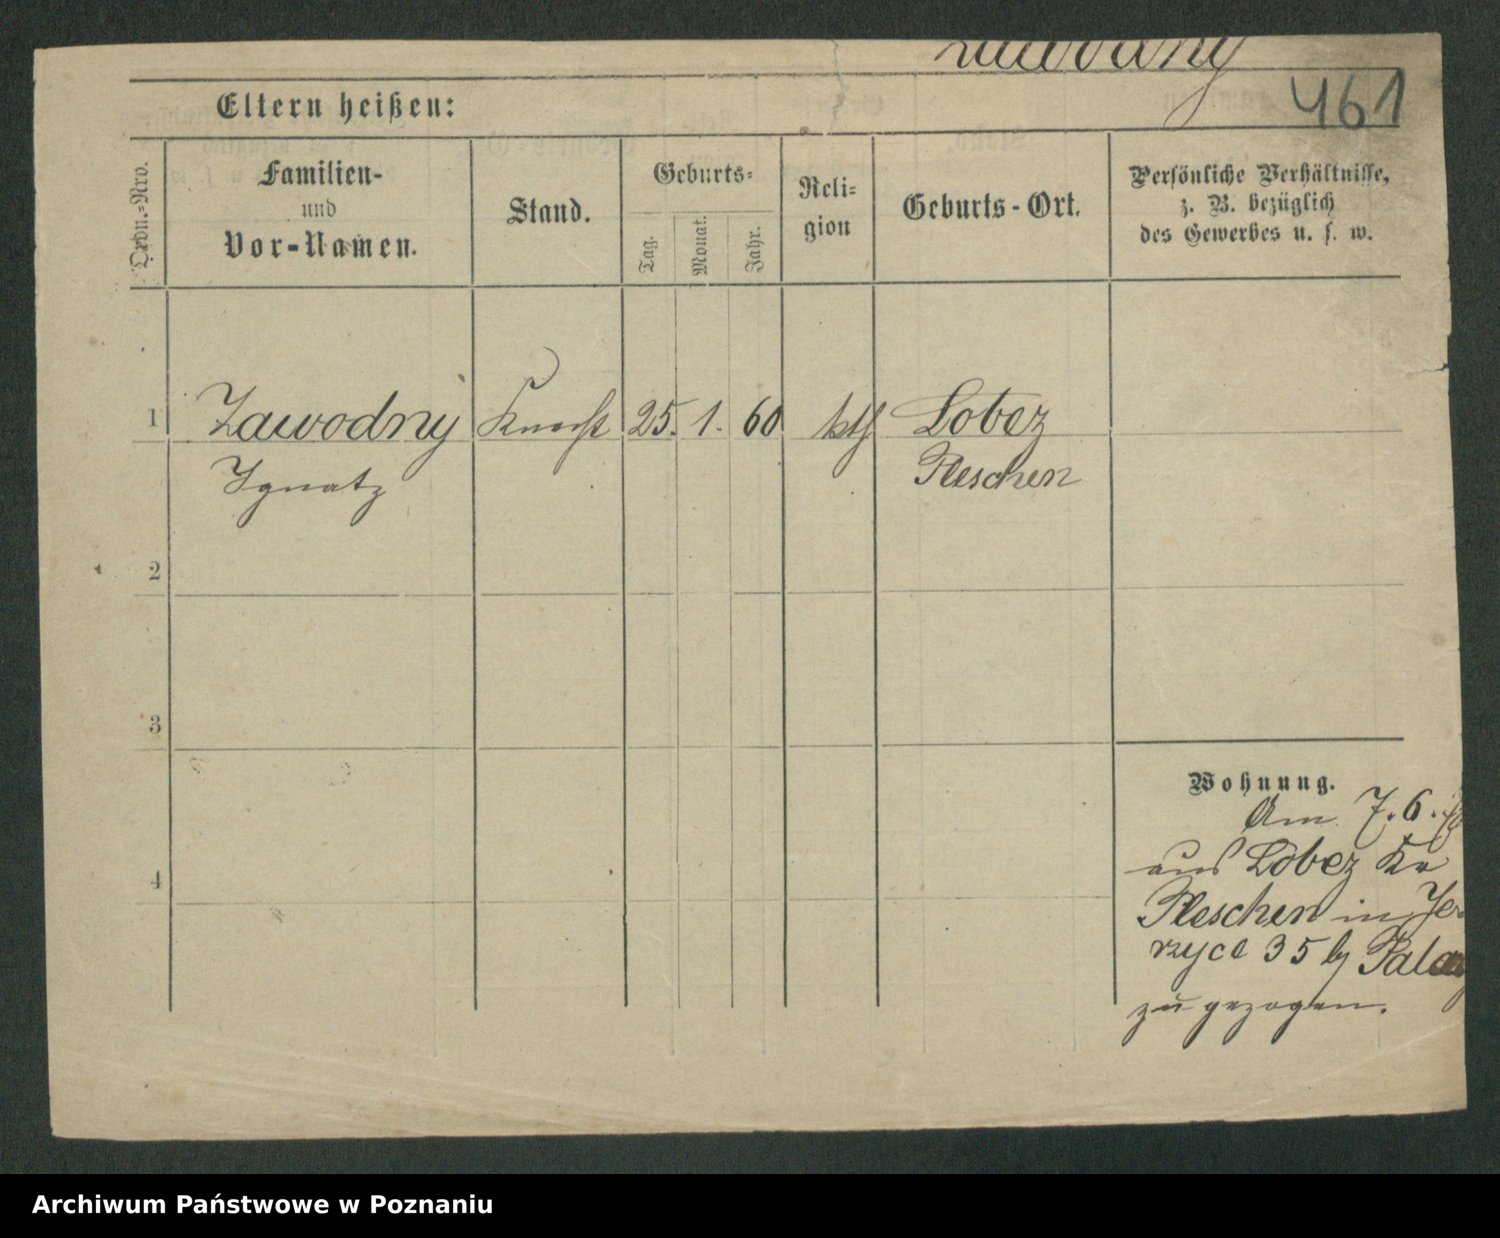 Zawodny
461
Eltern heißen:
Ordn.=Nro.
Familien-
und
Vor-Namen.
Stand.
Geburts=
Tag.
Monat.
Jahr.
Reli=
gion
Geburts-Ort.
Persönliche Verhältnisse,
z. B. bezüglich
des Gewerbes u. s. w.
1 Zawodny Knecht 25. 1. 60 kth Lobez
Ignatz Pleschen
2
3
4
Wohnung.
Am 7.6.
aus Lobez Kr
Pleschen in Jer
rzyce 35 b/
zu gezogen.
Archiwum Państwowe w Poznaniu